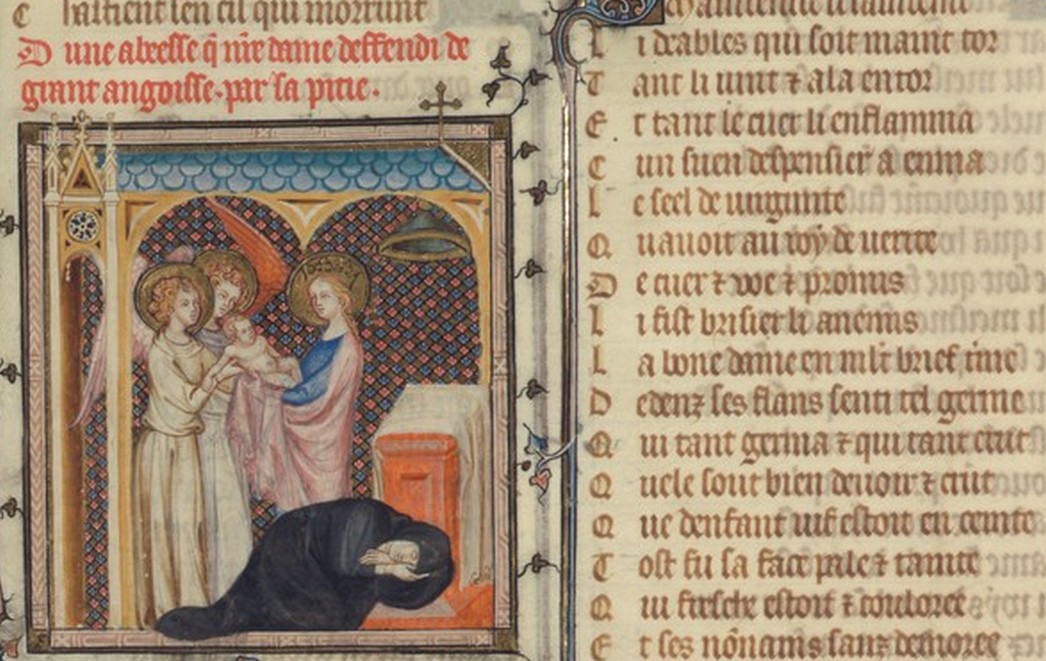 C lassient sen cil qui morront
D une abeesse q̄ nr̄e dame deffendi de
grant angoisse. par sa pitie.
L i deables qui soit maint tor
T ant li vint ⁊ ala entor
E t tant le cuer li enflamma
C un sien despensier a enma
L e seel de virginite
Q uavoit au roy de verite
D e cuer ⁊ voe ⁊ promis
L i fist brisier li anemis
L a bone dame en ml̄t brief tm̄e
D edenz ses flans senti tel germe
Q ui tant germa ⁊ qui tant crut
Q uele sout bien de voir ⁊ crut
Q ue denfant vif estoit en ceinte
T ost fu sa face pale ⁊ tainte
Q ui fresche estoit ⁊ couloree
E t ses nōnains sanz demoree